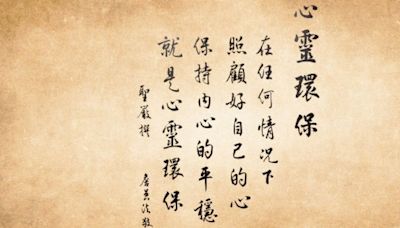 心靈環保
在任何情況下
照顧好自己的心
保持內心的平穩
就是心靈環保
聖嚴撰